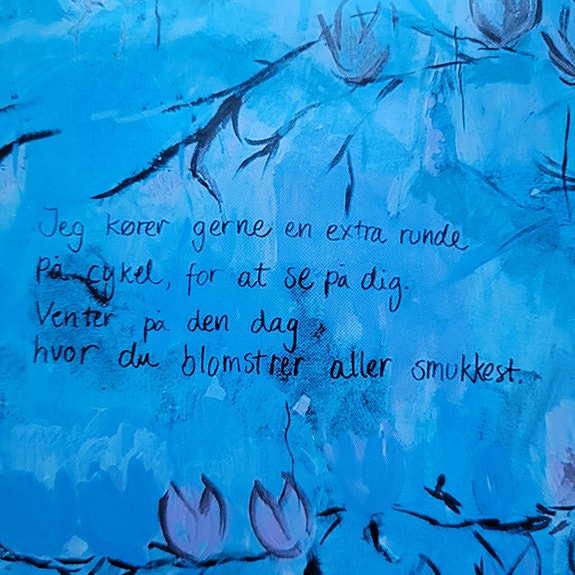 Jeg kører gerne en extra runde
på cykel, for at se på dig.
Venter på den dag,
hvor du blomstrer aller smukkest.